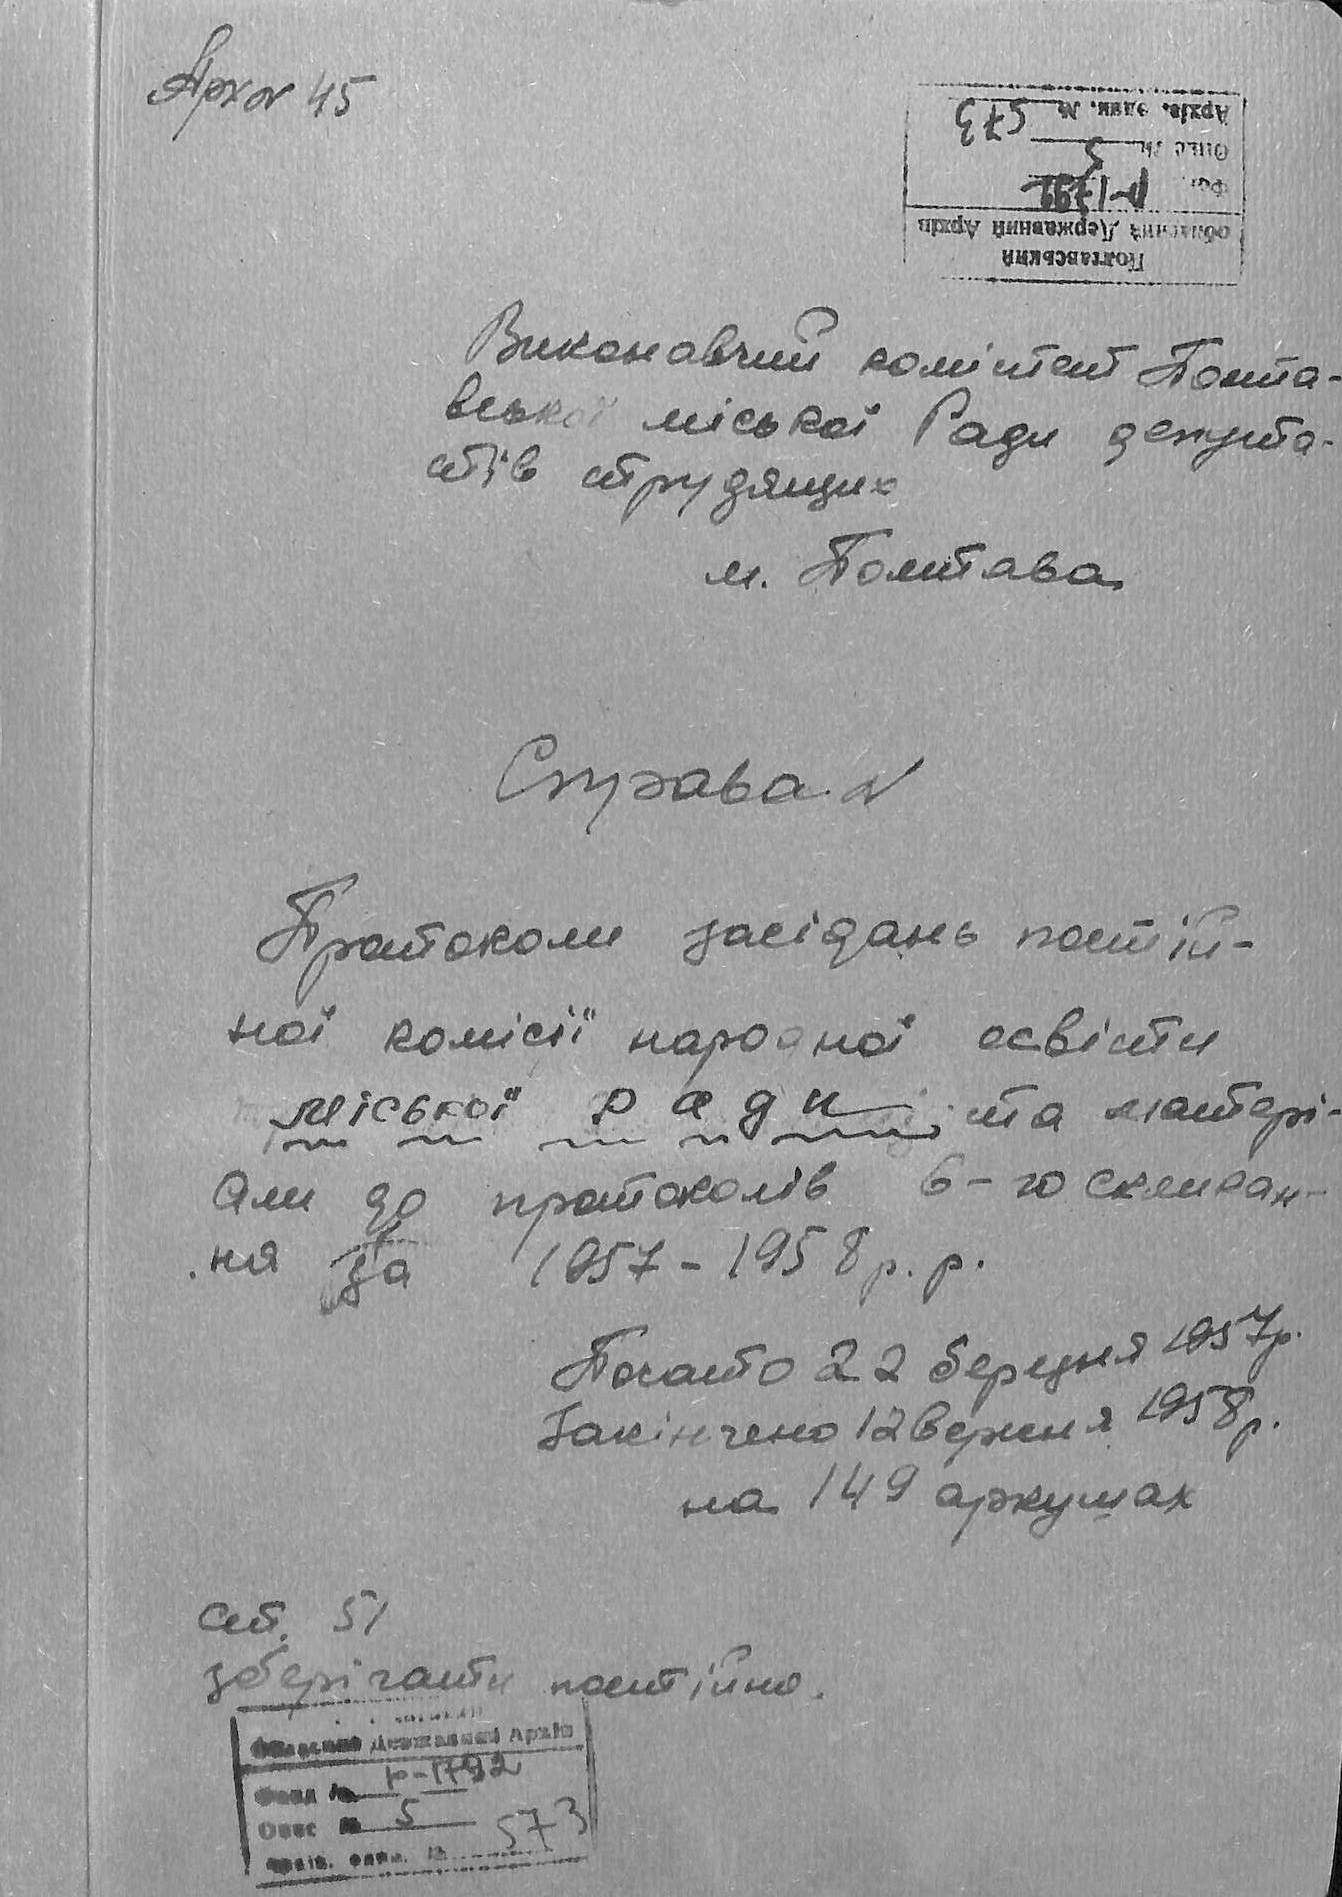 Арх № 45
Полтавський
обласний Державний Архів
Фонд Р-1792
Опис № 5
Архів. один. № 573
Виконавчий комітет Полта-
вської міської Ради депута-
тів трудящих
м. Полтава
Справа №
Протоколи засідань постій-
ної комісії народної освіти
міської ради та матері-
али до протоколів 6-го скликан-
ня за 1957-1958 р.р.
Почато 22 березня 1957р.
Закінчено 12 вересня 1958р.
на 149 аркушах
ст. 51
зберігати постійно.
Обласний Державний Архів
Фонд № Р-1792
Опис № 5
Архів. один. № 573